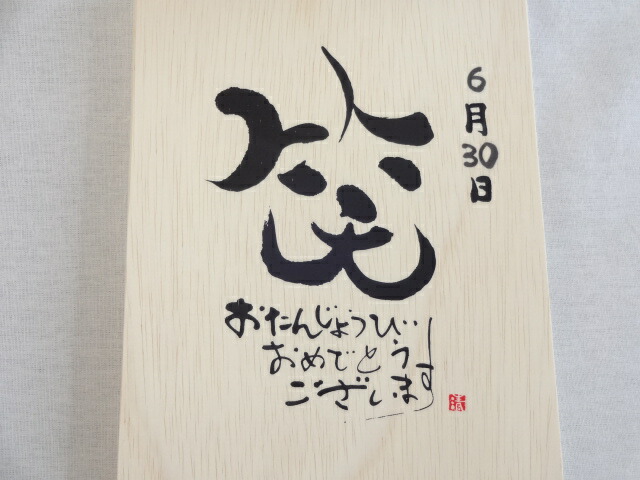 6月30日
笑
おたんじょうび
おめでとう
ございます